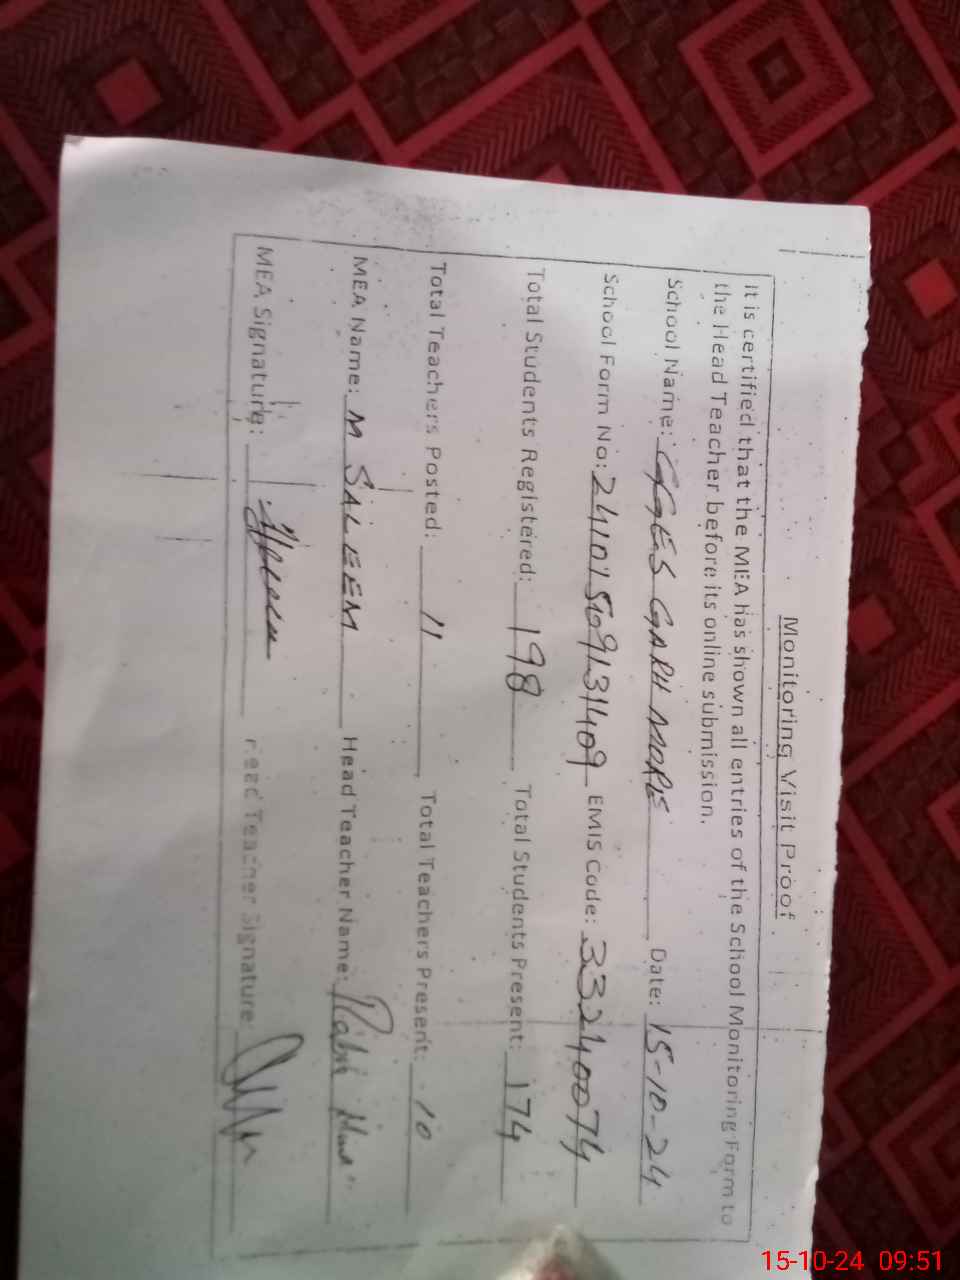 Monitoring Visit Proof
It is certified that the MEA has shown all entries of the School Monitoring Form to
the Head Teacher before its online submission.
School Name: GGES GARH MORE Date: 15-10-24
School Form No: 24101569131409 EMIS Code: 33240074
Total Students Registered: 198 Total Students Present: 174
Total Teachers Posted: 11 Total Teachers Present: 10
MEA Name: M SALEEM Head Teacher Name:
MEA Signature: Head Teacher Signature:
15-10-24 09:51